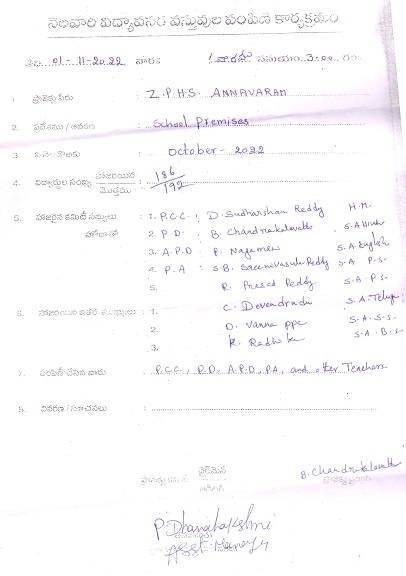 నెలవారి విద్యావసర వస్తువుల పంపిణీ కార్యక్రమం
తేది. 01-11-2022 వారం సమయం. 3-00 గం.
1. ప్రాజెక్టు పేరు : Z.P.H.S. ANNAVARAM
2. ప్రదేశము / ఆవరణ : School Premises
3. ఏ నెల కొరకు : October - 2022
4. విద్యార్థుల సంఖ్య హాజరయిన / మొత్తము : 186 / 192
5. హాజరైన కమిటీ సభ్యులు : 1. P.C.C : D. Sudharshan Reddy H.M.
హోదాతో 2. P.D : B. Chandrakalavathi S.A Hindi
3. A.P.D : P. Nagamani S.A. English
4. P.A : S.B. Sreenivasula Reddy S.A P.S.
5. R. Prasad Reddy S.A. P.S.
6. హాజరయిన ఇతర ముఖ్యులు : 1. C. Devendrudu S.A. Telugu
2. D. Vannappa S.A. S.S.
3. K. Radhika S.A. B.S.
7. పంపిణీ చేసిన వారు : P.C.C, P.D, A.P.D, P.A, and other Teachers
8. వివరణ / సూచనలు :
ప్రాజెక్టు కమిటీ చైర్మెన్
B. Chandrakalavathi
P. Dhanalakshmi
Asst Manager